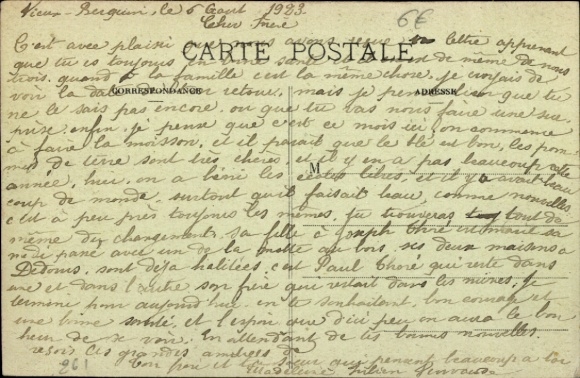 Vieux-Berquin, le 5 Août 1923.
6€
Cher Frère
C'est avec plaisir que nous avons reçue ta lettre apprenant
CARTE POSTALE
que tu es toujours en bonne santé est de même de nous
trois, quand à la famille c'est la même chose, je croyais de
voir la date de ton retour, mais je pense bien que tu
CORRESPONDANCE
ADRESSE
ne le sais pas encore, ou que tu vas nous faire une sur-
prise, enfin, je pense que c'est ce mois ici, on commence
à faire la moisson, et il parait que le blé est bon, les pom-
M
mes de terre sont très chères, et il y en a pas beaucoup cette
année, hier, on a béni les et il y avait beau
coup de monde, surtout qu'il faisait beau, comme nouvelles
c'est à peu près toujours les mêmes, tu trouveras tout de
même des changements, sa fille à Joseph Thoré
avec un de la motte au bois, ses deux maisons a
sont déjà habitées, c'est Paul Thoré qui reste dans
une et dans l'autre son frère qui restait dans les mines. Je
termine pour aujourd'hui en te souhaitant, bon courage et
une bonne santé, et l'espoir que d'ici peu on aura le bon
heur de se voir. En attendant de tes bonnes nouvelles.
reçois les grandes amitiés de
ton père et ta sœur qui pensent beaucoup a toi
961
Madeleine